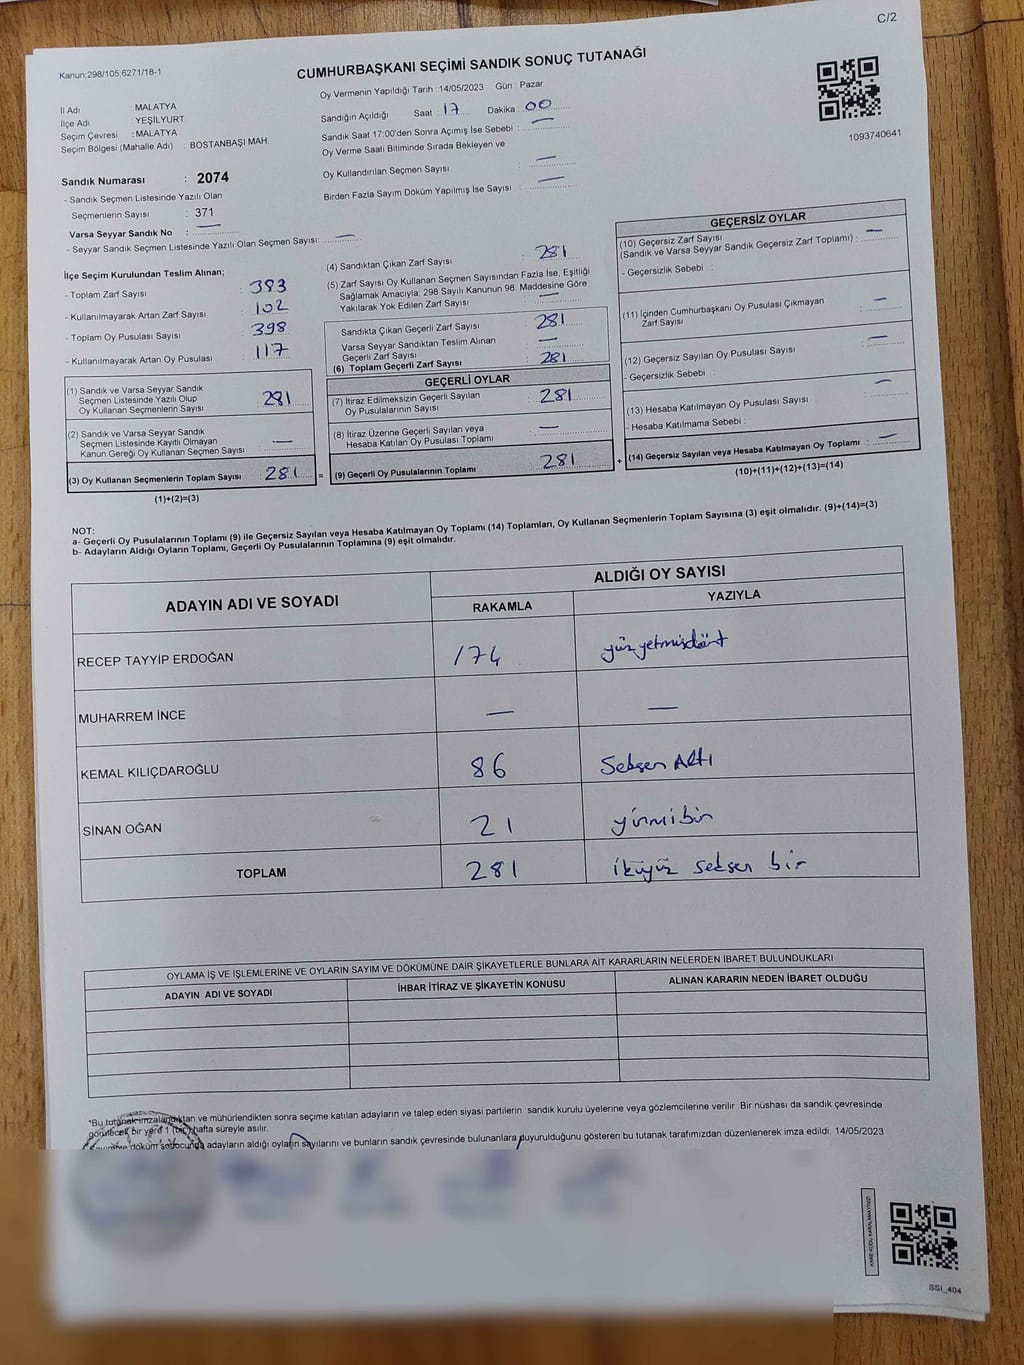 C/2
Kanun;298/105;6271/18-1
CUMHURBAŞKANI SEÇİMİ SANDIK SONUÇ TUTANAĞI
Oy Vermenin Yapıldığı Tarih :14/05/2023 Gün : Pazar
İl Adı : MALATYA
İlçe Adı : YEŞİLYURT
Seçim Çevresi : MALATYA
Seçim Bölgesi (Mahalle Adı) : BOSTANBAŞI MAH.
Sandığın Açıldığı Saat : 17 Dakika : 00
Sandık Saat 17:00'den Sonra Açımış İse Sebebi : —
Oy Verme Saati Bitiminde Sırada Bekleyen ve
Oy Kullandırılan Seçmen Sayısı : —
Birden Fazla Sayım Döküm Yapılmış İse Sayısı : —
1093740641
Sandık Numarası : 2074
- Sandık Seçmen Listesinde Yazılı Olan
Seçmenlerin Sayısı : 371
Varsa Seyyar Sandık No : —
- Seyyar Sandık Seçmen Listesinde Yazılı Olan Seçmen Sayısı: —
İlçe Seçim Kurulundan Teslim Alınan;
- Toplam Zarf Sayısı : 383
- Kullanılmayarak Artan Zarf Sayısı : 102
- Toplam Oy Pusulası Sayısı : 398
- Kullanılmayarak Artan Oy Pusulası : 117
(1) Sandık ve Varsa Seyyar Sandık
Seçmen Listesinde Yazılı Olup
Oy Kullanan Seçmenlerin Sayısı : 281
(2) Sandık ve Varsa Seyyar Sandık
Seçmen Listesinde Kayıtlı Olmayan
Kanun Gereği Oy Kullanan Seçmen Sayısı : —
(3) Oy Kullanan Seçmenlerin Toplam Sayısı : 281 =
(1)+(2)=(3)
(4) Sandıktan Çıkan Zarf Sayısı : 281
(5) Zarf Sayısı Oy Kullanan Seçmen Sayısından Fazla İse, Eşitliği
Sağlamak Amacıyla; 298 Sayılı Kanunun 98. Maddesine Göre
Yakılarak Yok Edilen Zarf Sayısı : —
Sandıkta Çıkan Geçerli Zarf Sayısı : 281
Varsa Seyyar Sandıktan Teslim Alınan
Geçerli Zarf Sayısı : —
(6) Toplam Geçerli Zarf Sayısı : 281
GEÇERLİ OYLAR
(7) İtiraz Edilmeksizin Geçerli Sayılan
Oy Pusulalarının Sayısı : 281
(8) İtiraz Üzerine Geçerli Sayılan veya
Hesaba Katılan Oy Pusulası Toplamı : —
(9) Geçerli Oy Pusulalarının Toplamı : 281 +
GEÇERSİZ OYLAR
(10) Geçersiz Zarf Sayısı
(Sandık ve Varsa Seyyar Sandık Geçersiz Zarf Toplamı) : —
- Geçersizlik Sebebi :
(11) İçinden Cumhurbaşkanı Oy Pusulası Çıkmayan
Zarf Sayısı : —
(12) Geçersiz Sayılan Oy Pusulası Sayısı : —
- Geçersizlik Sebebi :
(13) Hesaba Katılmayan Oy Pusulası Sayısı : —
- Hesaba Katılmama Sebebi :
(14) Geçersiz Sayılan veya Hesaba Katılmayan Oy Toplamı : —
(10)+(11)+(12)+(13)=(14)
NOT:
a- Geçerli Oy Pusulalarının Toplamı (9) ile Geçersiz Sayılan veya Hesaba Katılmayan Oy Toplamı (14) Toplamları, Oy Kullanan Seçmenlerin Toplam Sayısına (3) eşit olmalıdır. (9)+(14)=(3)
b- Adayların Aldığı Oyların Toplamı, Geçerli Oy Pusulalarının Toplamına (9) eşit olmalıdır.
ADAYIN ADI VE SOYADI ALDIĞI OY SAYISI
RAKAMLA YAZIYLA
RECEP TAYYİP ERDOĞAN 174 yüz yetmişdört
MUHARREM İNCE — —
KEMAL KILIÇDAROĞLU 86 Seksen Altı
SİNAN OĞAN 21 yirmibir
TOPLAM 281 ikiyüz seksen bir
OYLAMA İŞ VE İŞLEMLERİNE VE OYLARIN SAYIM VE DÖKÜMÜNE DAİR ŞİKAYETLERLE BUNLARA AİT KARARLARIN NELERDEN İBARET BULUNDUKLARI
ADAYIN ADI VE SOYADI İHBAR İTİRAZ VE ŞİKAYETİN KONUSU ALINAN KARARIN NEDEN İBARET OLDUĞU
*Bu tutanak imzalandıktan ve mühürlendikten sonra seçime katılan adayların ve talep eden siyasi partilerin sandık kurulu üyelerine veya gözlemcilerine verilir. Bir nüshası da sandık çevresinde
görülecek bir yere 1 (bir) hafta süreyle asılır.
döküm sonucunda adayların aldığı oyların sayılarını ve bunların sandık çevresinde bulunanlara duyurulduğunu gösteren bu tutanak tarafımızdan düzenlenerek imza edildi. 14/05/2023
KARE KODU KARALAMAYINIZ!
SSI_404